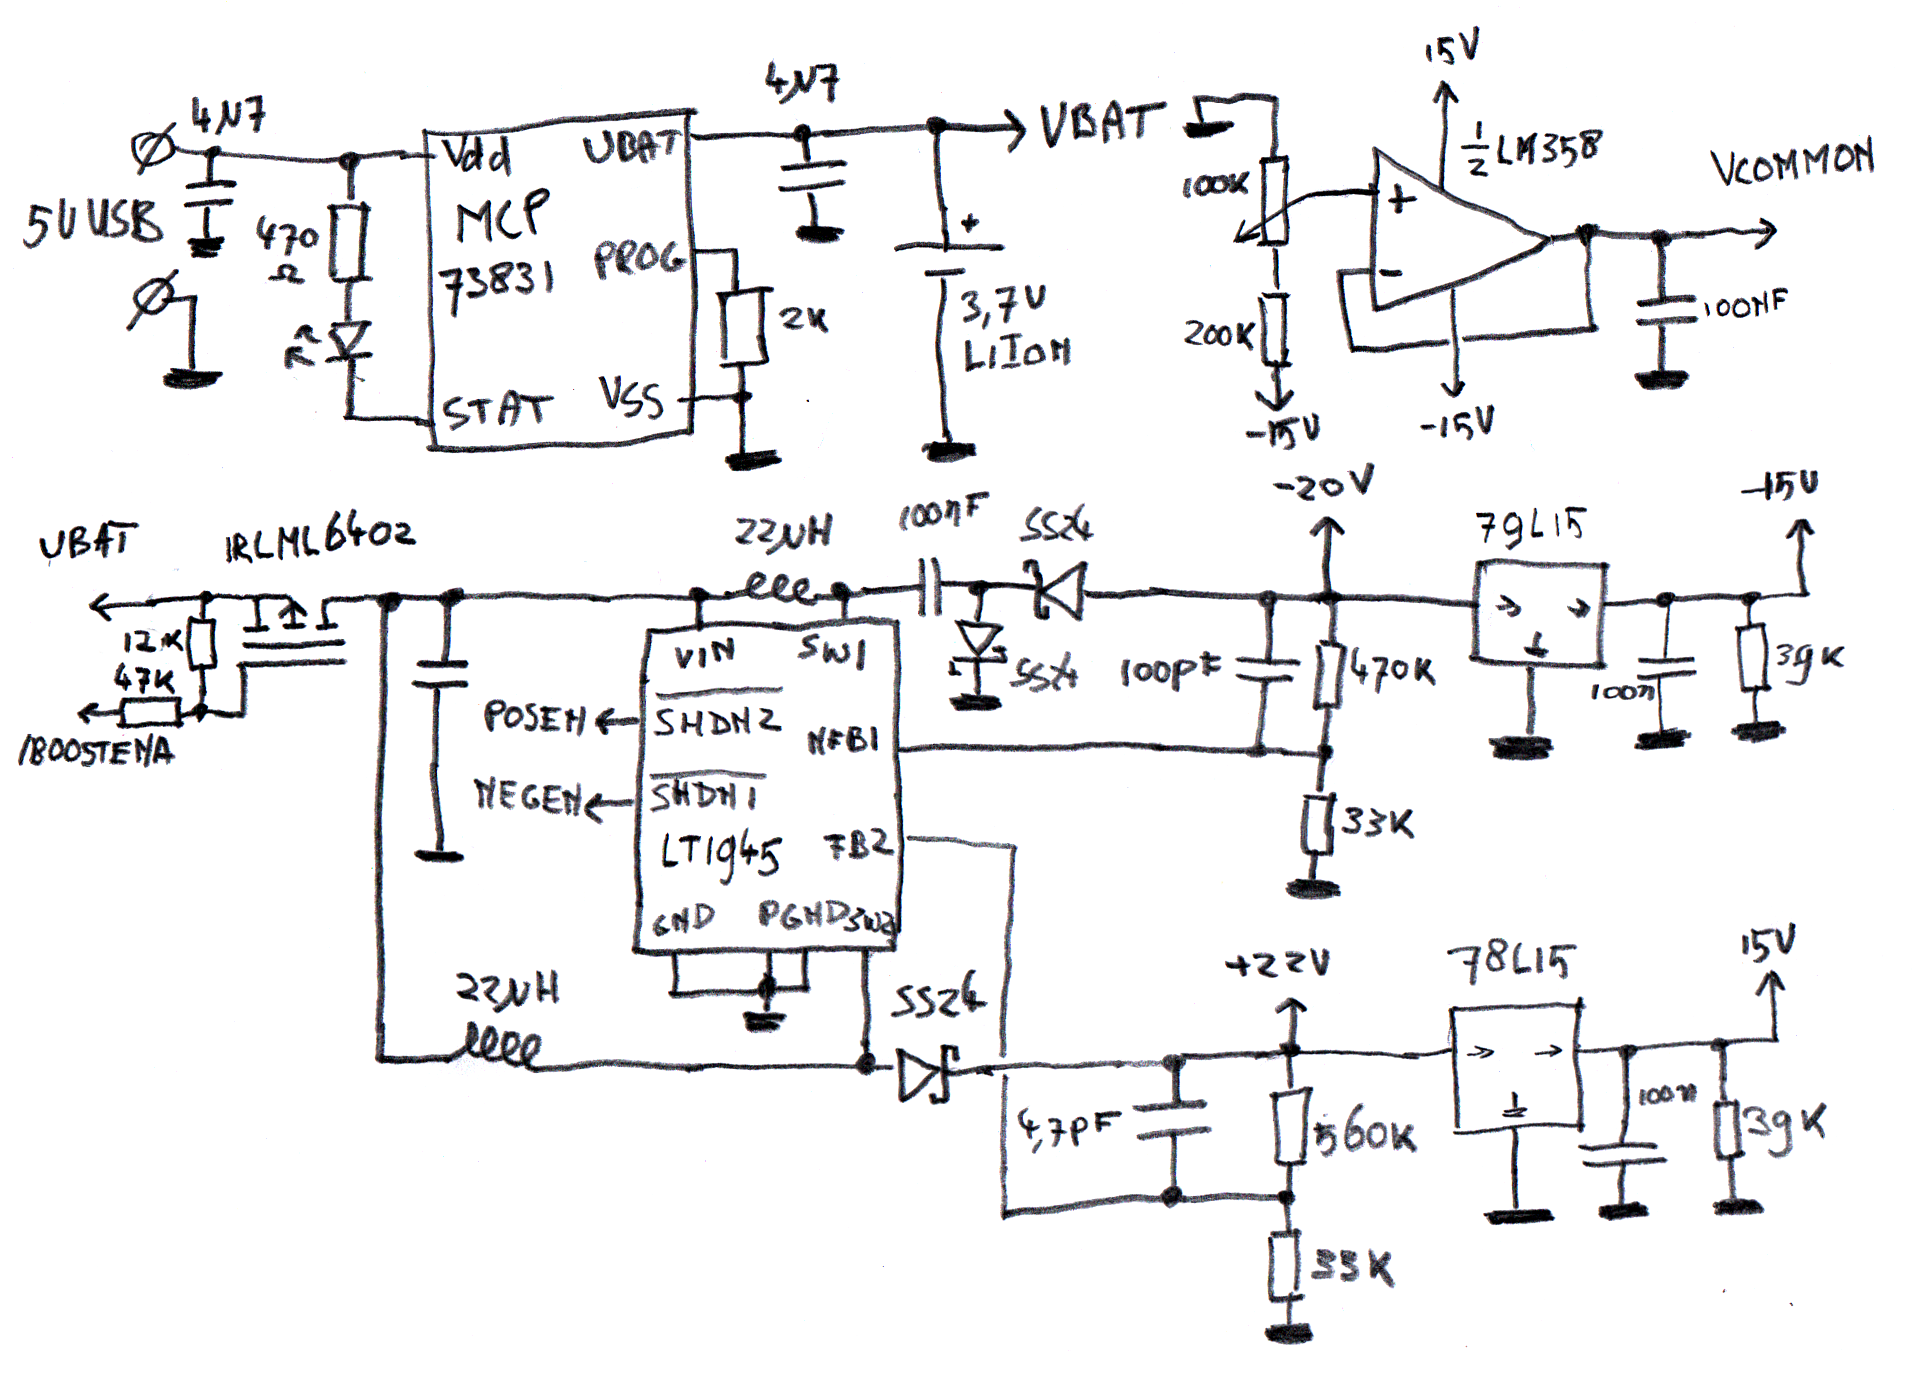 4µ7
5V USB
470
Ω
Vdd
VBAT
MCP
73831
PROG
STAT
VSS
2K
4µ7
+
3,7V
LiIon
VBAT
100K
200K
-15V
15V
½ LM358
+
-
-15V
VCOMMON
100NF
VBAT
IRLML6402
12K
47K
/BOOSTENA
22µH
100nF
SS24
SS24
VIN
SW1
SHDN2
NFB1
SHDN1
LT1945
FB2
GND
PGND
SW2
POSEN
NEGEN
100pF
-20V
470K
33K
79L15
100n
-15V
39K
22µH
SS24
4,7pF
+22V
560K
33K
78L15
100n
15V
39K